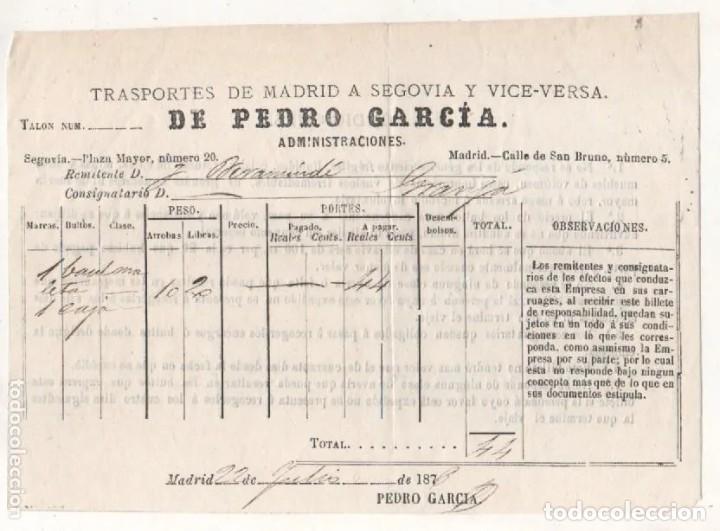 TRASPORTES DE MADRID A SEGOVIA Y VICE-VERSA.
TALON NUM.
DE PEDRO GARCÍA.
ADMINISTRACIONES.
Segovia.—Plaza Mayor, número 20.
Madrid.—Calle de San Bruno, número 5.
Remitente D. J.
Consignatario D.
Granja
PESO. PORTES.
Marcas. Bultos. Clase. Arrobas Libras. Precio. Pagado. Reales Cents. A pagar. Reales Cents Desembolsos. TOTAL. OBSERVACIONES.
1
10 20 44
1 caja
Los remitentes y consignata-
rios de los efectos que conduz-
ca esta Empresa en sus car-
ruages, al recibir este billete
de responsabilidad, quedan su-
jetos en un todo á sus condi-
ciones en lo que les correspon-
da, como asimismo la Em-
presa por su parte; por lo cual
esta no responde bajo ningun
concepto mas que de lo que en
sus documentos estipula.
TOTAL. 44
Madrid 22 de Julio de 1876
PEDRO GARCIA
todocoleccion
todocoleccion.net